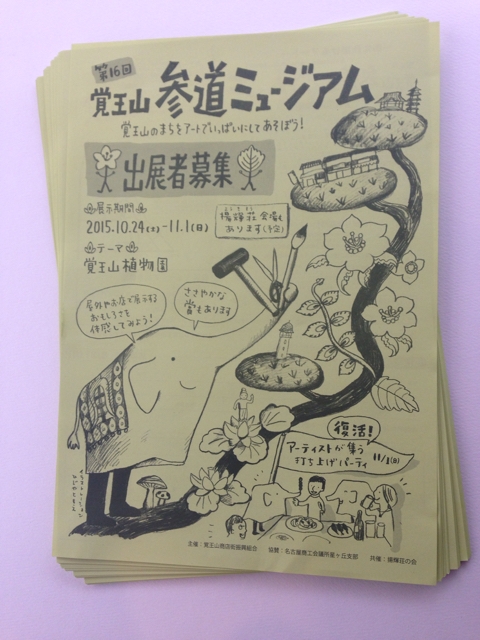 第16回
覚王山 参道ミュージアム
覚王山のまちをアートでいっぱいにしてあそぼう!
出展者募集
展示期間
2015.10.24(土)-11.1(日)
ようきそう
揚輝荘会場も
あります(予定)
テーマ
覚王山植物園
屋外やお店で展示する
おもしろさを
体感してみよう!
ささやかな
賞もあります
復活!
アーティストが集う
打ち上げパーティ 11/1(日)
主催:覚王山商店街振興組合 協賛:名古屋商工会議所星ヶ丘支部 共催:揚輝荘の会